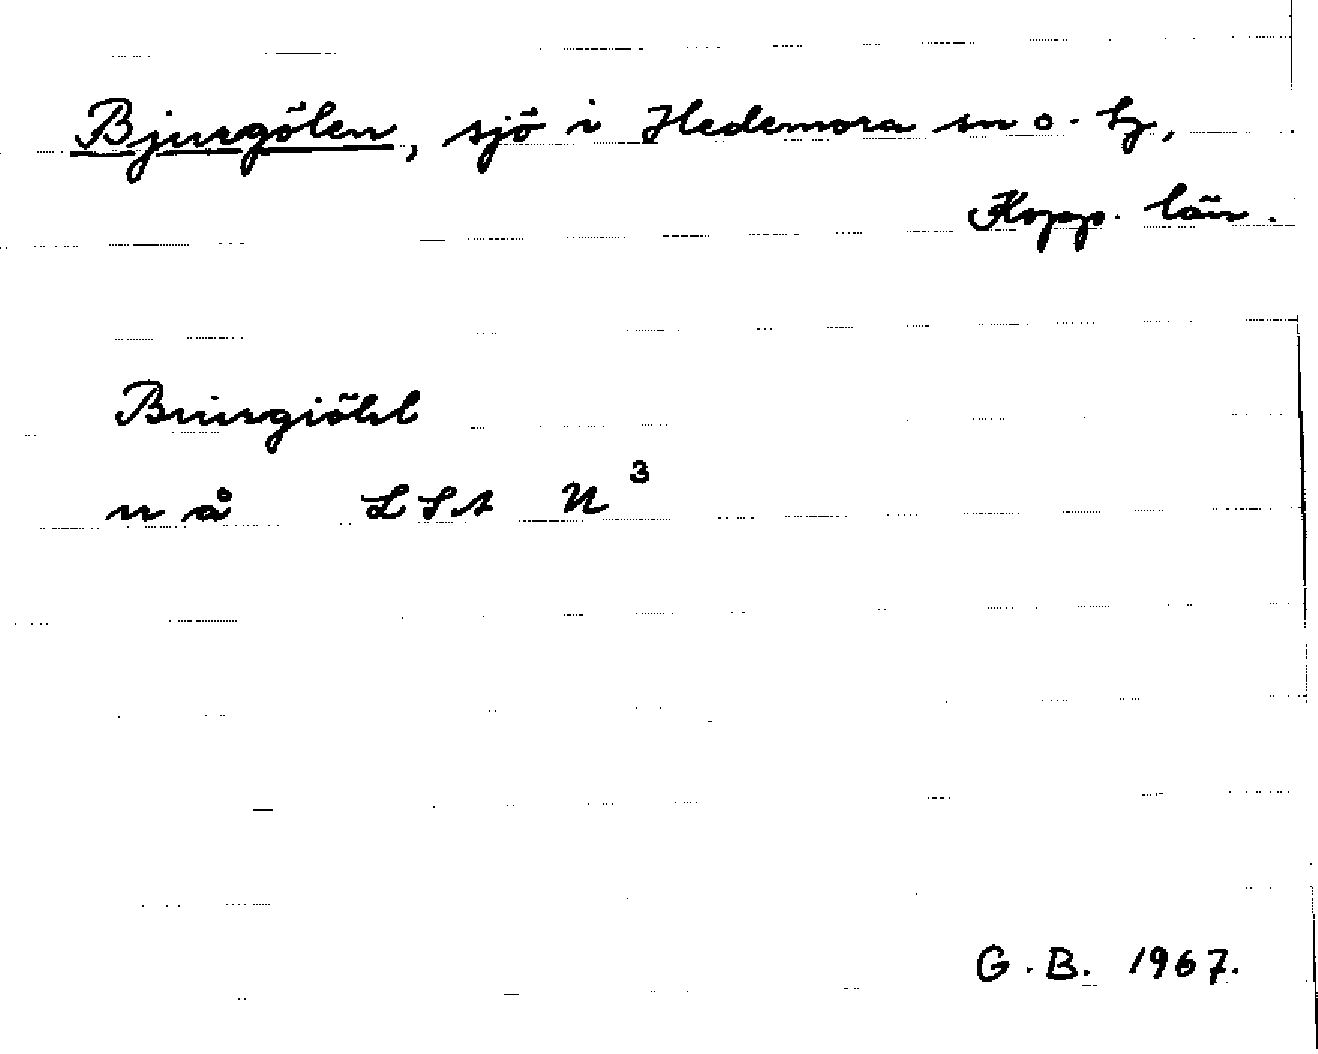 Bjurgölen, sjö i Hedemora sn o. hg,
Kopp. län.
Biurgiöhl
n å LSA N³
G.B. 1967.